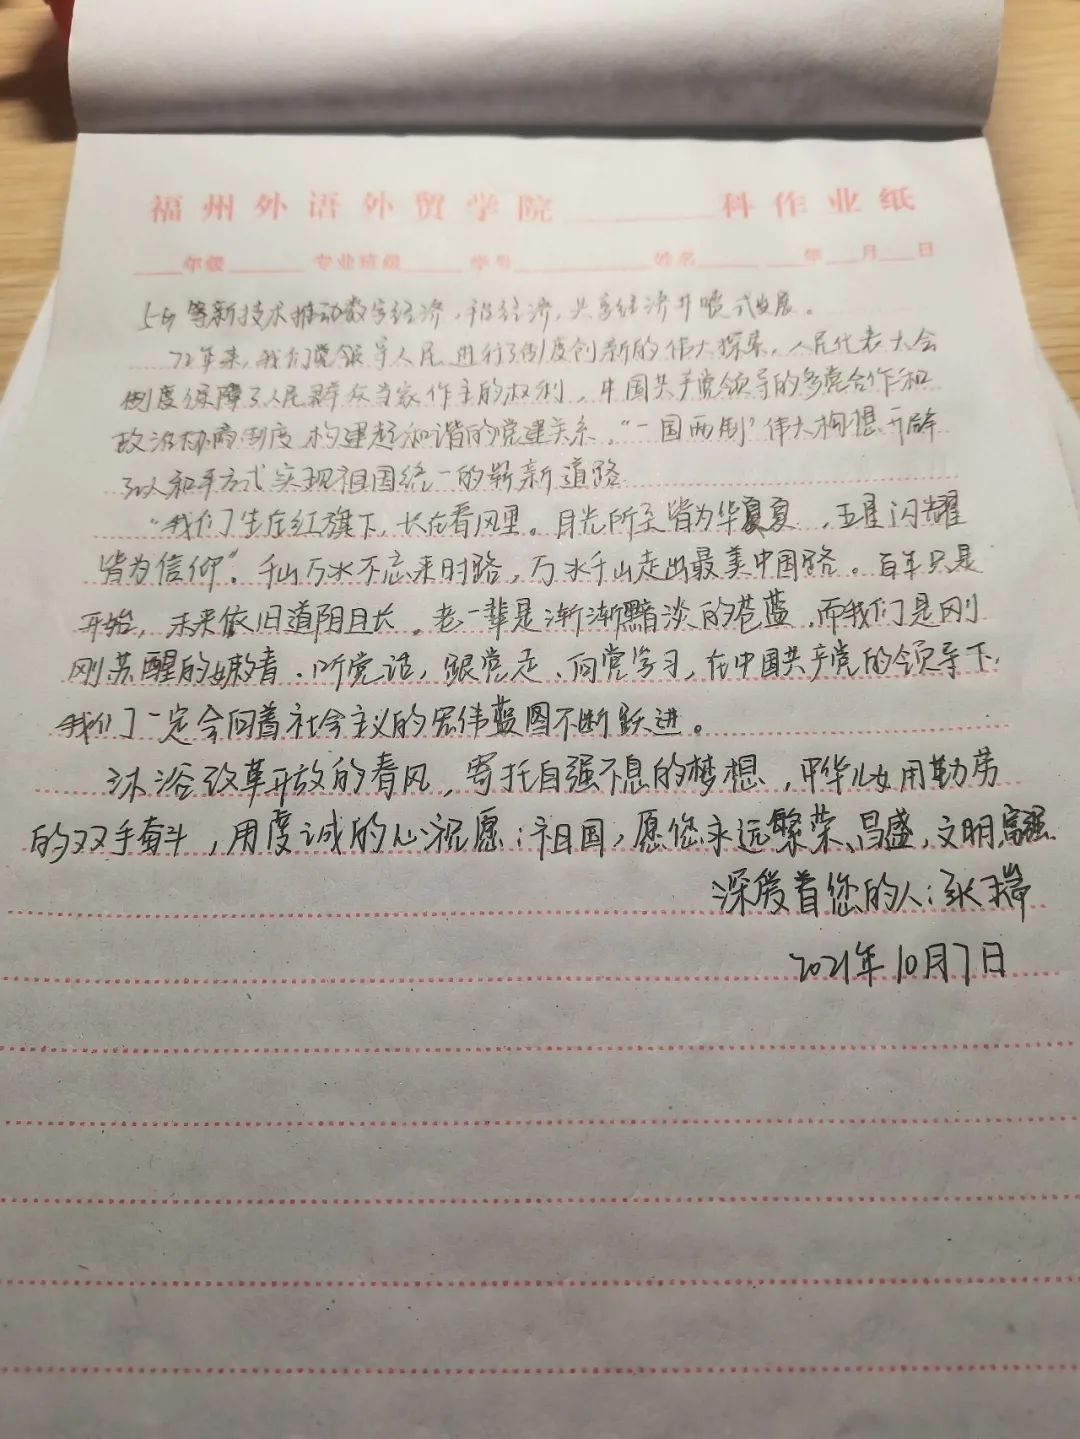 福州外语外贸学院 科作业纸
年级 专业班级 学号 姓名 年 月 日
5G等新技术推动数字经济,平台经济,共享经济井喷式发展。
72年来,我们党领导人民进行了制度创新的伟大探索,人民代表大会
制度保障了人民群众当家作主的权利,中国共产党领导的多党合作和
政治协商制度构建起和谐的党建关系,“一国两制”伟大构想开辟
了以和平方式实现祖国统一的崭新道路
“我们生在红旗下,长在春风里。目光所至皆为华夏,五星闪耀
皆为信仰”。千山万水不忘来时路,万水千山走出最美中国路。百年只是
开始,未来依旧道阻且长。老一辈是渐渐黯淡的苍蓝,而我们是刚
刚苏醒的嫩青、听党话,跟党走、向党学习,在中国共产党的领导下,
我们一定会向着社会主义的宏伟蓝图不断跃进。
沐浴改革开放的春风,寄托自强不息的梦想,中华儿女用勤劳
的双手奋斗,用虔诚的心祝愿:祖国,愿您永远繁荣、昌盛,文明,富强.
深爱着您的人:张瑞
2021年10月7日